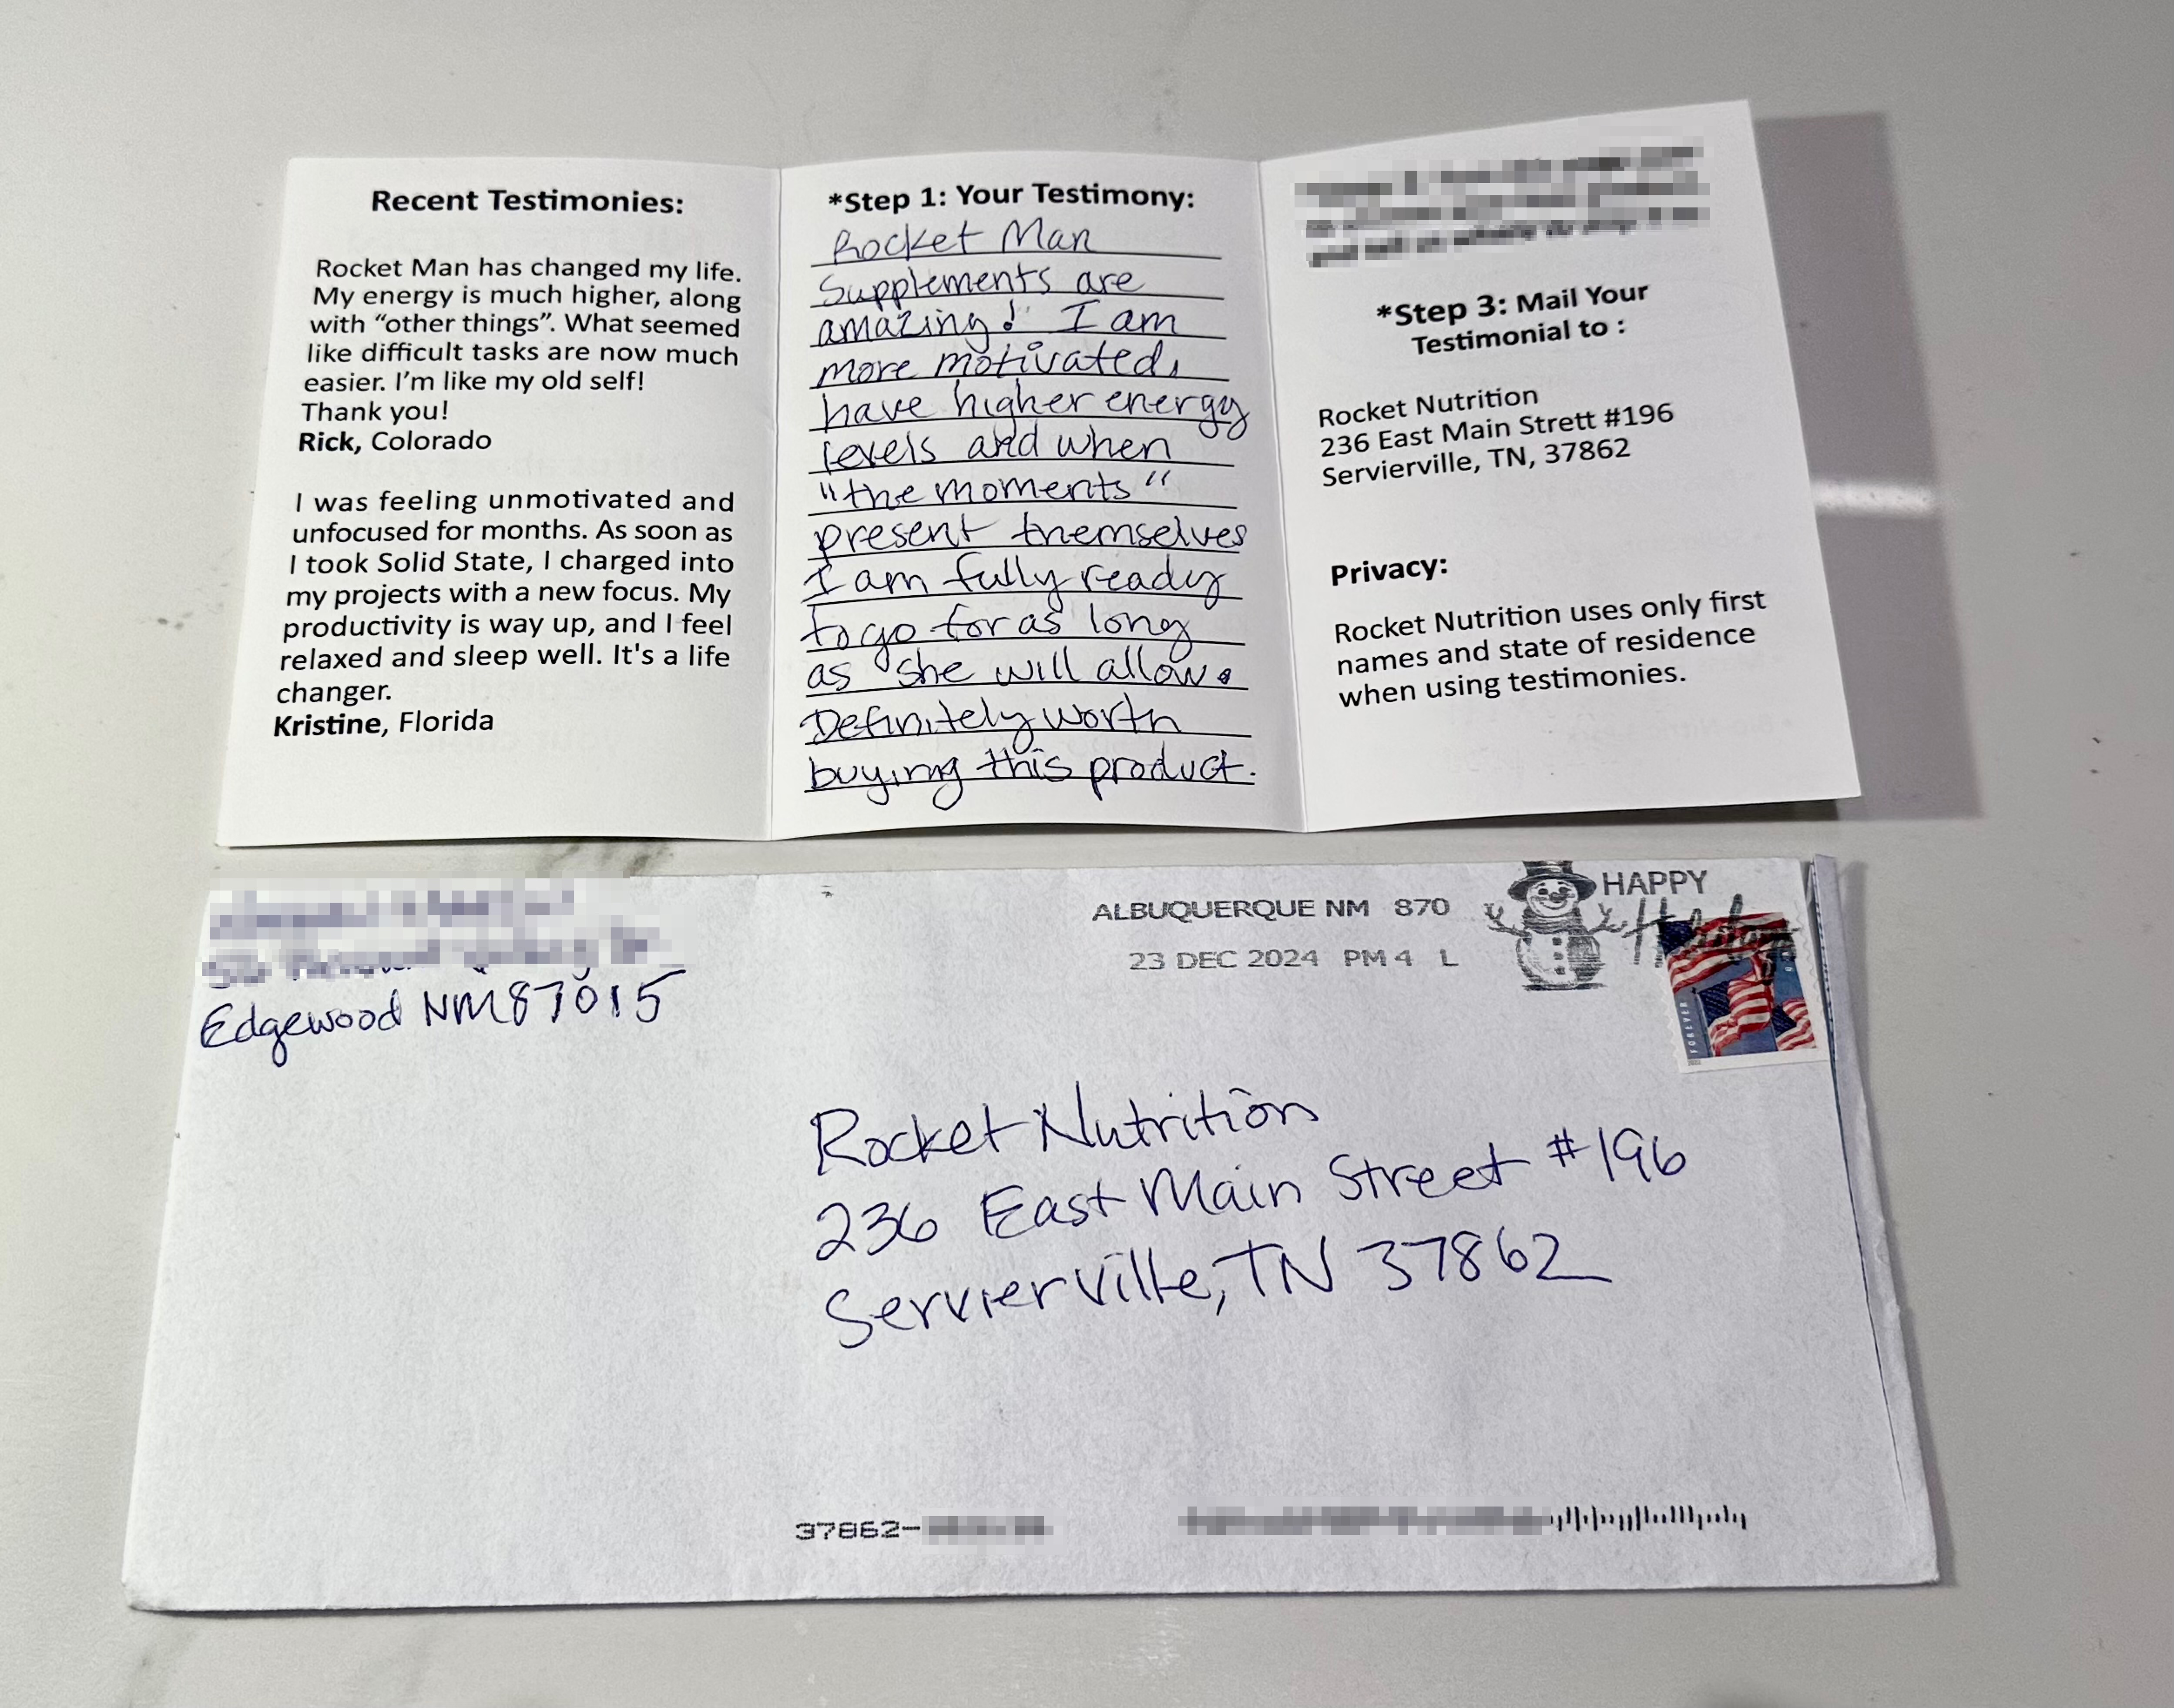 Recent Testimonies:
Rocket Man has changed my life.
My energy is much higher, along
with “other things”. What seemed
like difficult tasks are now much
easier. I’m like my old self!
Thank you!
Rick, Colorado
I was feeling unmotivated and
unfocused for months. As soon as
I took Solid State, I charged into
my projects with a new focus. My
productivity is way up, and I feel
relaxed and sleep well. It's a life
changer.
Kristine, Florida
*Step 1: Your Testimony:
Rocket Man
Supplements are
amazing! I am
more motivated,
have higher energy
levels and when
"the moments"
present themselves
I am fully ready
to go for as long
as she will allow.
Definitely worth
buying this product.
*Step 3: Mail Your
Testimonial to :
Rocket Nutrition
236 East Main Strett #196
Servierville, TN, 37862
Privacy:
Rocket Nutrition uses only first
names and state of residence
when using testimonies.
Edgewood NM 87015
ALBUQUERQUE NM 870
23 DEC 2024 PM 4 L
HAPPY
Holidays
FOREVER
Rocket Nutrition
236 East Main Street #196
Servierville, TN 37862
37862-